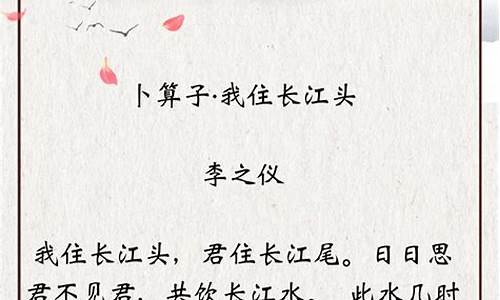 卜算子·我住长江头
李之仪
我住长江头，君住长江尾。日日思
君不见君，共饮长江水。 此水几时